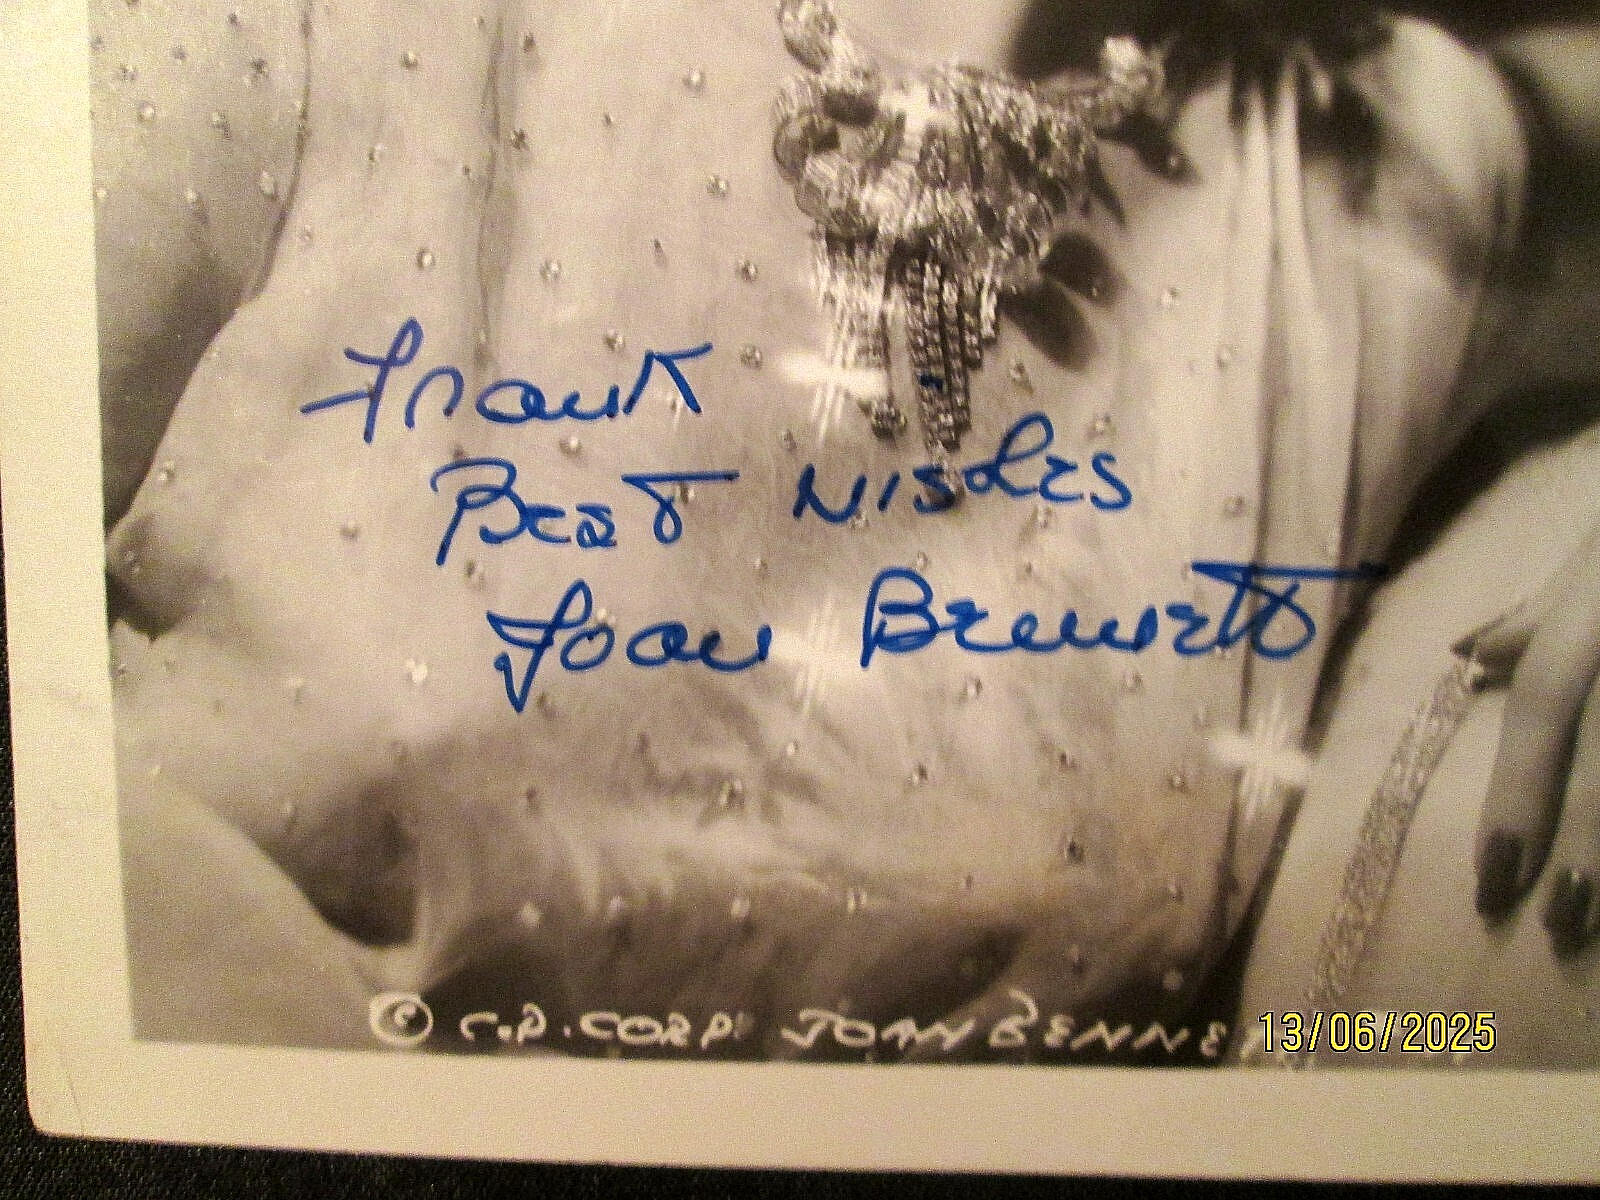 Frank
Best Wishes
Joan Bennett
© C.P. CORP. JOAN BENNE
13/06/2025